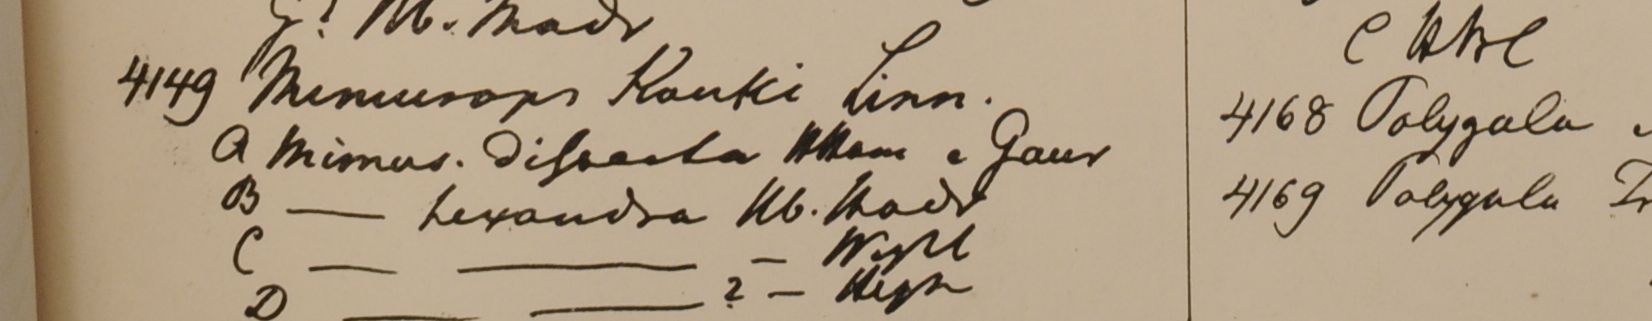 G? Hb. Madr
4149 Mimusops Kauki Linn.
A Mimus. dissecta HHam e Gaur
B — hexandra Hb. Madr
C — — — Wight
D — — ? — Heyn
C HBC
4168 Polygala
4169 Polygala